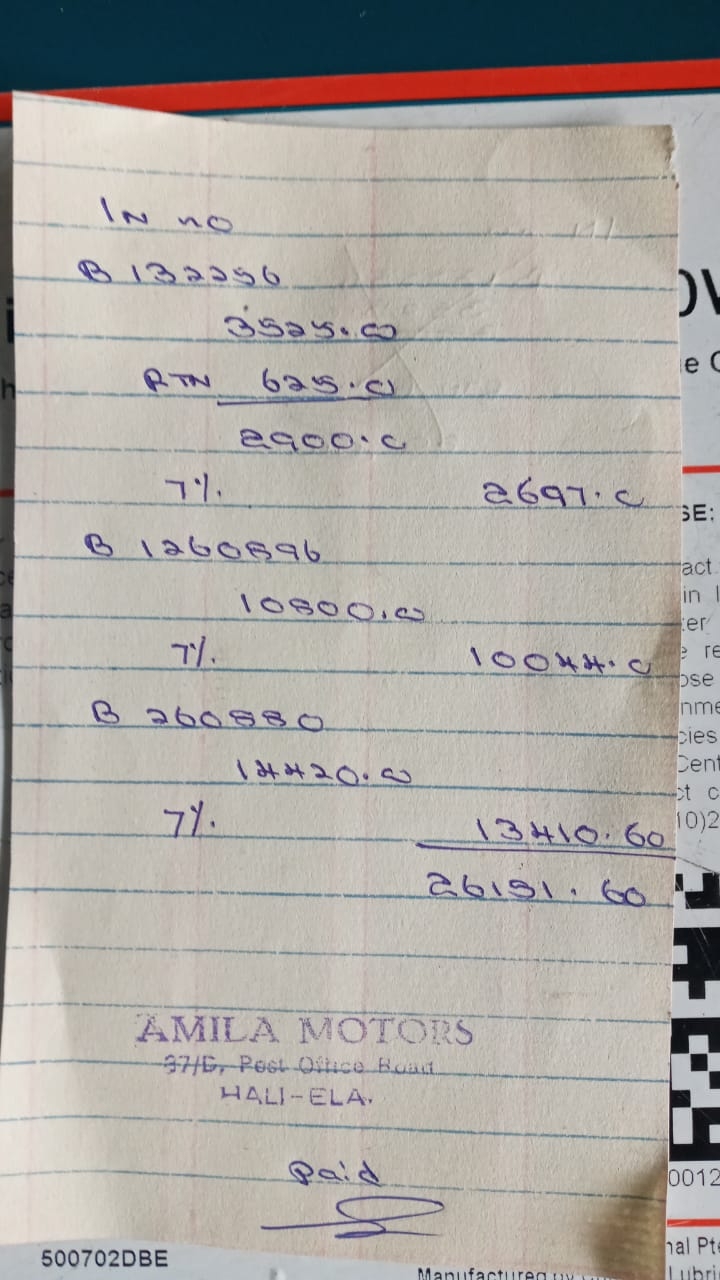 IN no
B 132256
3525.00
RTN 625.0
2900.0
7%. 2697.0
B 1260896
10800.00
7%. 10044.0
B 260880
14420.00
7%. 13410.60
26151.60
AMILA MOTORS
37/5, Post Office Road
HALI-ELA.
Paid
500702DBE
Manufactured by
OV
e C
SE:
act
in
ter
e re
ose
nme
cies
Cent
ct c
10)2
0012
nal Pte
Lubri